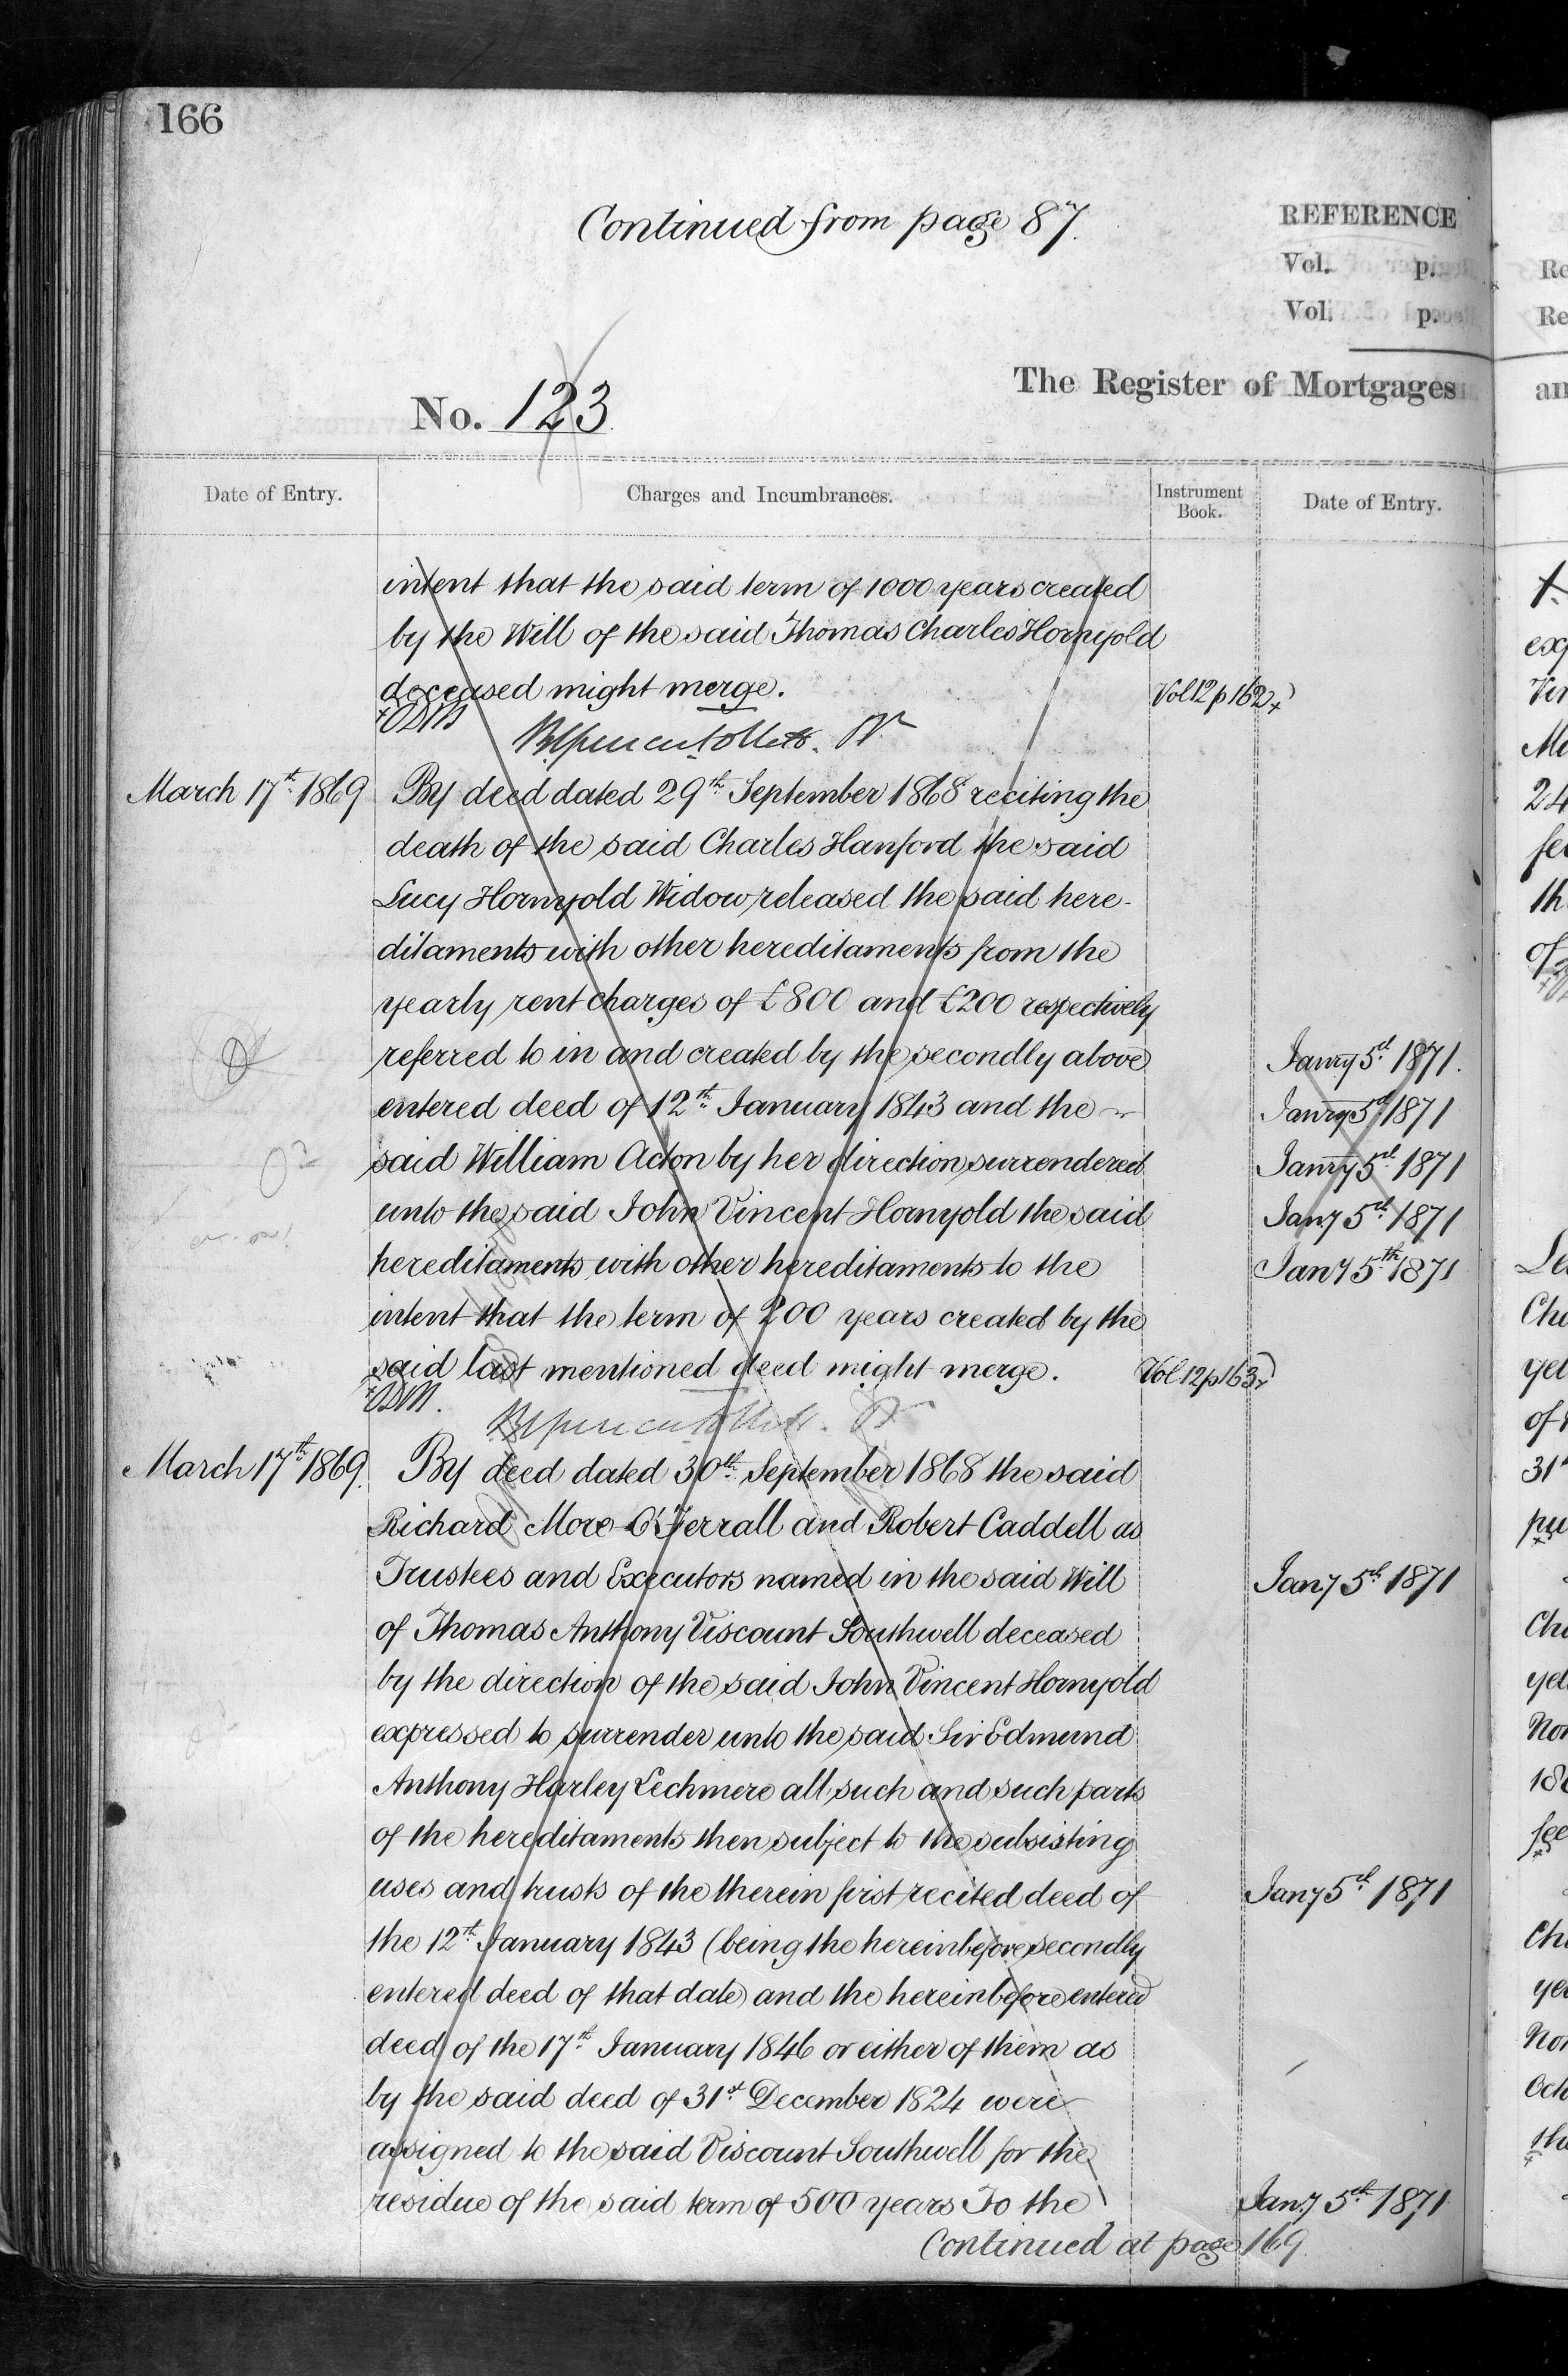 166
Continued from page 87.
REFERENCE
Vol. p.
Vol. p.
The Register of Mortgages
No. 123
Date of Entry.
Charges and Incumbrances.
Instrument Book.
Date of Entry.
intent that the said term of 1000 years created
by the Will of the said Thomas Charles Hornyold
deceased might merge. Vol 12 p 162
March 17th 1869 By deed dated 29th September 1868 reciting the
death of the said Charles Hanford the said
Lucy Hornyold Widow released the said here-
ditaments with other hereditaments from the
yearly rent charges of £800 and £200 respectively
referred to in and created by the secondly above
entered deed of 12th January 1843 and the
said William Acton by her direction surrendered
unto the said John Vincent Hornyold the said
hereditaments with other hereditaments to the
intent that the term of 200 years created by the
said last mentioned deed might merge. Vol 12 p 163
March 17th 1869. By deed dated 30th September 1868 the said
Richard More O'Ferrall and Robert Caddell as
Trustees and Executors named in the said Will
of Thomas Anthony Viscount Southwell deceased
by the direction of the said John Vincent Hornyold
expressed to surrender unto the said Sir Edmund
Anthony Harley Lechmere all such and such parts
of the hereditaments then subject to the subsisting
uses and trusts of the therein first recited deed of
the 12th January 1843 (being the hereinbefore secondly
entered deed of that date) and the hereinbefore entered
deed of the 17th January 1846 or either of them as
by the said deed of 31st December 1824 were
assigned to the said Viscount Southwell for the
residue of the said term of 500 years To the
Continued at page 169
Janry 5th 1871.
Janry 5th 1871
Janry 5th 1871
Jany 5th 1871
Jany 5th 1871
Jany 5th 1871
Jany 5th 1871
Jany 5th 1871